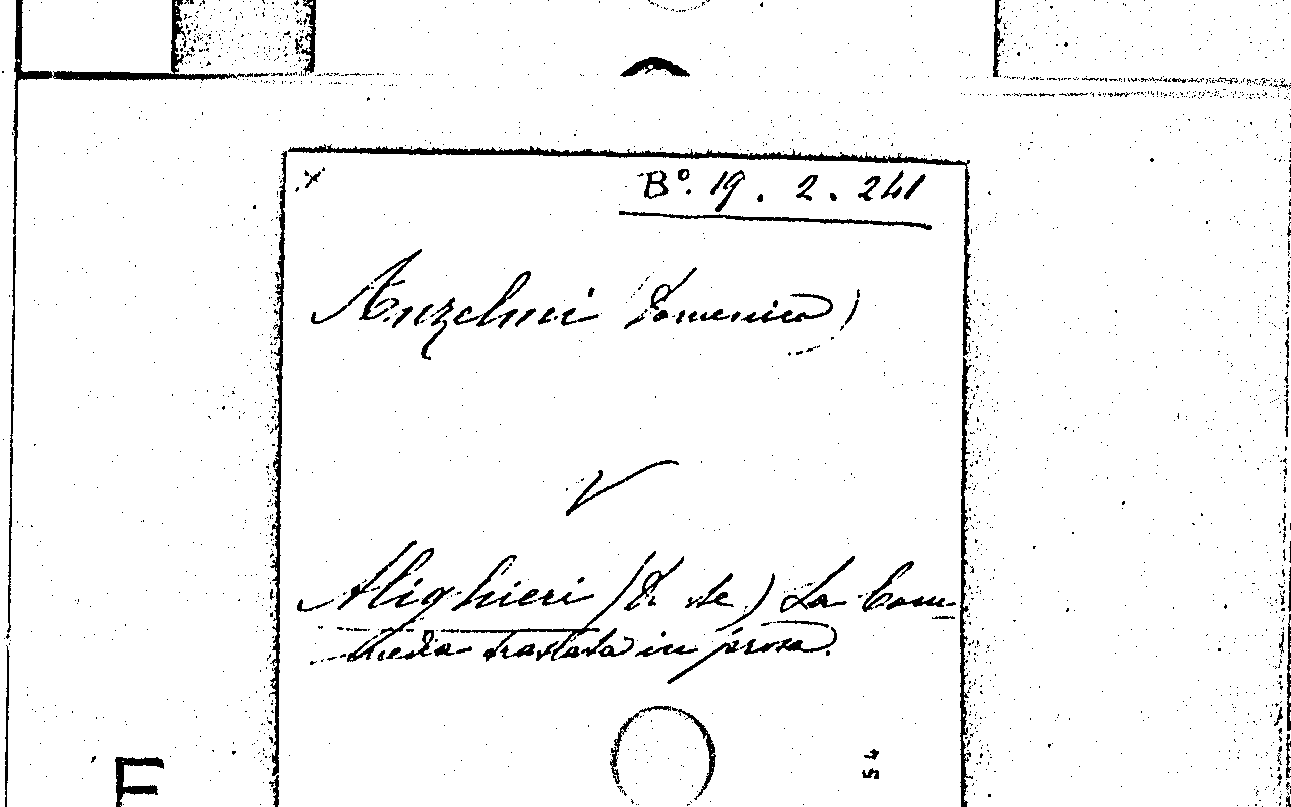 x
B°. 19. 2. 241
Anzelmi (Domenico)
V
Alighieri (Dante) La Com-
media traslata in prosa.
54
E